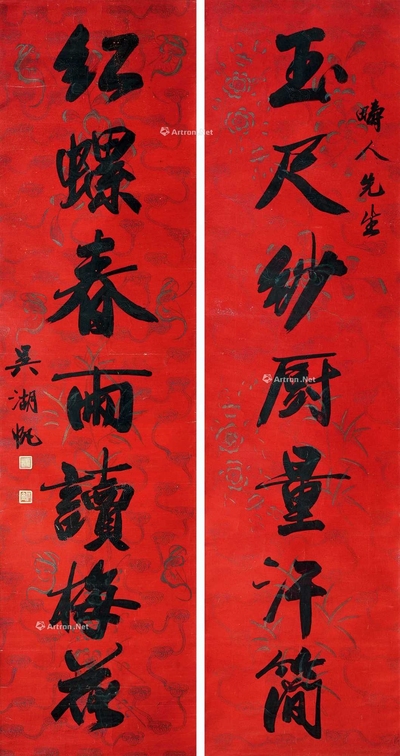 疇人先生
玉尺紗厨量汗簡
紅螺春雨讀梅花
吳湖帆
Artron.Net
Artron.Net
Artron.Net
Artron.Net